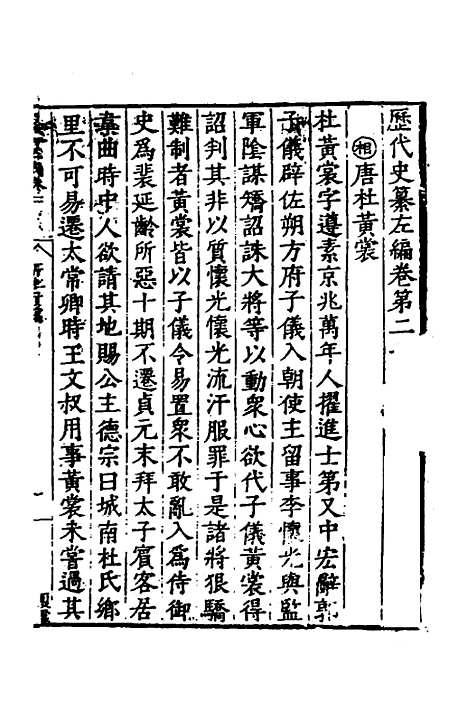 歷代史纂左編卷第二
相唐杜黃裳
杜黃裳字遵素京兆萬年人擢進士第又中宏辭郭
子儀辟佐朔方府子儀入朝使主留事李懷光與監
軍陰謀矯詔誅大將等以動衆心欲代子儀黃裳得
詔判其非以質懷光懷光流汗服罪于是諸將狠驕
難制者黃裳皆以子儀令易置衆不敢亂入為侍御
史爲裴延齡所惡十期不遷貞元末拜太子賓客居
韋曲時中人欲請其地賜公主德宗曰城南杜氏鄉
里不可易遷太常卿時王文叔用事黃裳未嘗過其